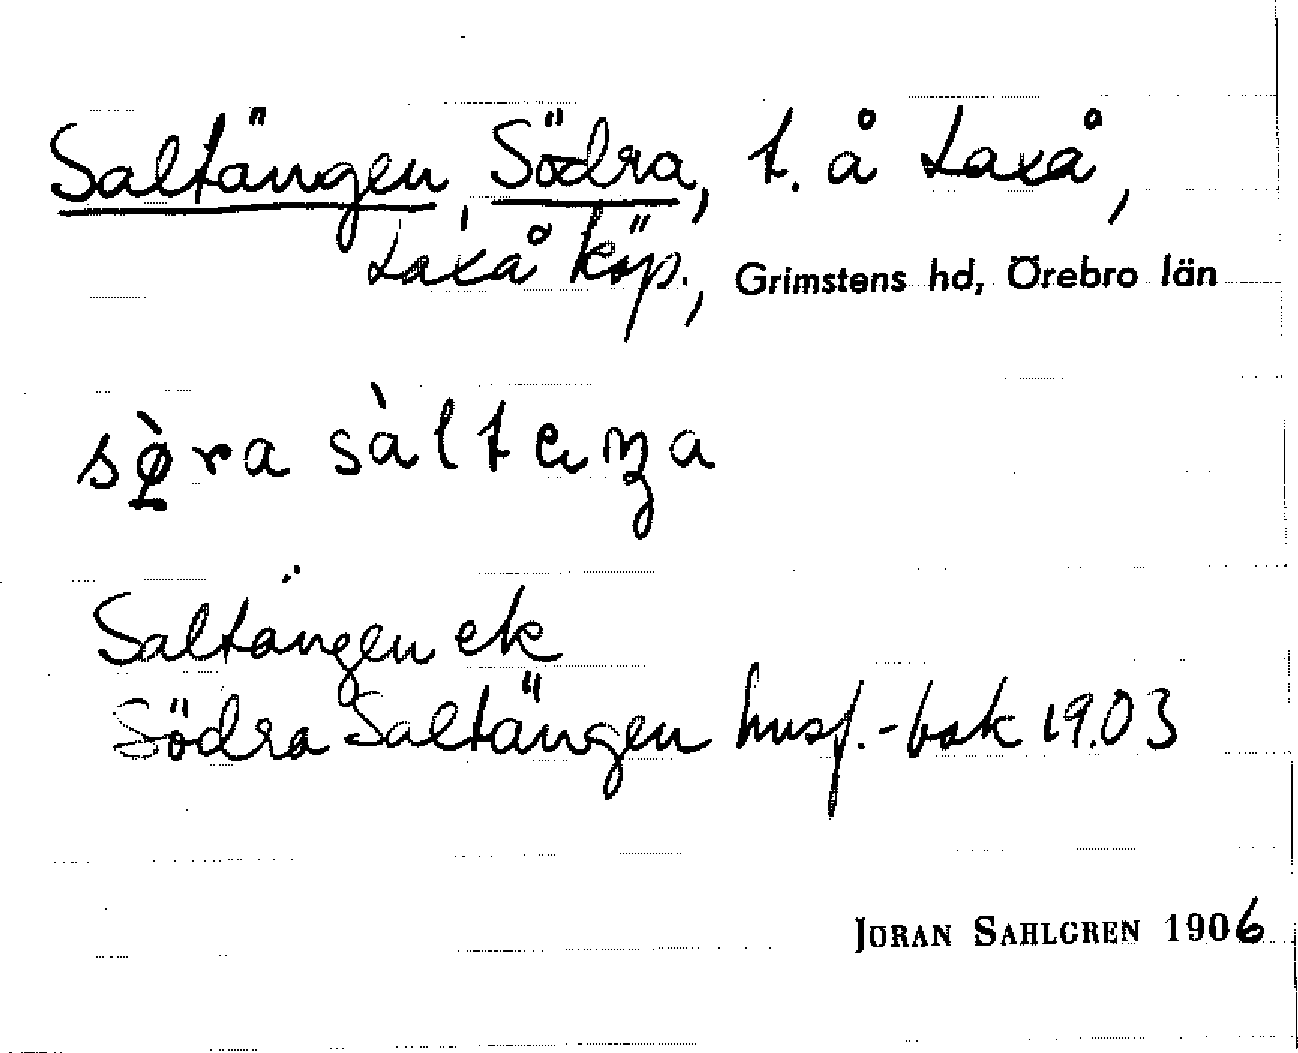 Saltängen, Södra, t. å Laxå,
Laxå köp., Grimstens hd, Örebro län
sø̀ra sàltæŋa
Saltängen ek
Södra Saltängen husf.-bok 1903
JÖRAN SAHLGREN 1906